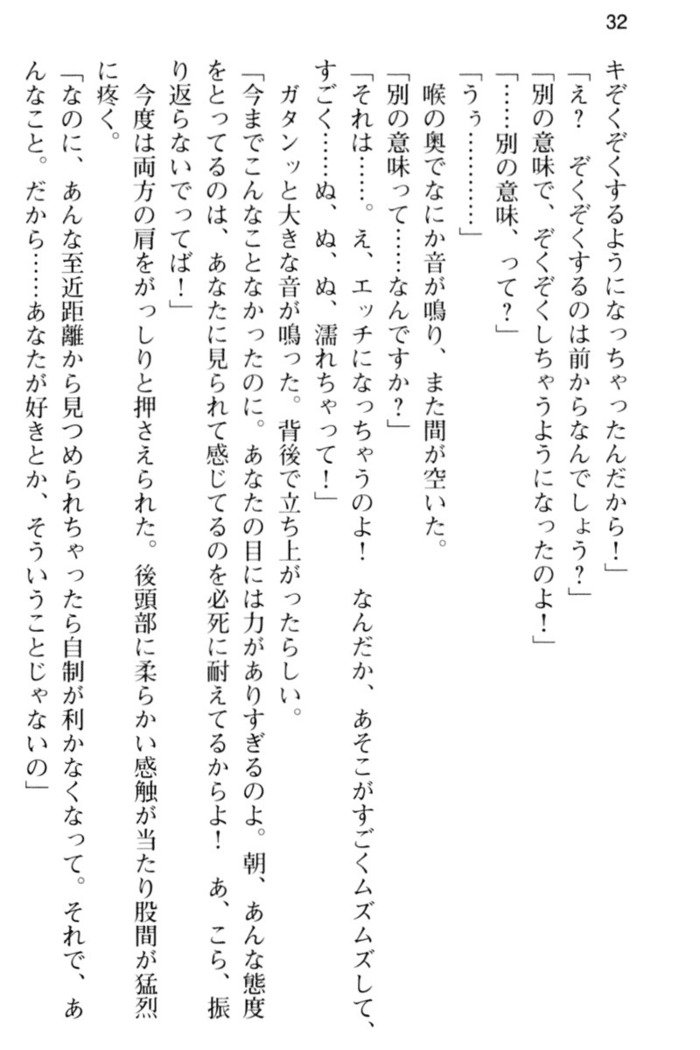 32
キぞくぞくするようになっちゃったんだから！」
「え？　ぞくぞくするのは前からなんでしょう？」
「別の意味で、ぞくぞくしちゃうようになったのよ！」
「……別の意味、って？」
「うぅ…………」
　喉の奥でなにか音が鳴り、また間が空いた。
「別の意味って……なんですか？」
「それは……。え、エッチになっちゃうのよ！　なんだか、あそこがすごくムズムズして、
すごく……ぬ、ぬ、ぬ、濡れちゃって！」
　ガタンッと大きな音が鳴った。背後で立ち上がったらしい。
「今までこんなことなかったのに。あなたの目には力がありすぎるのよ。朝、あんな態度
をとってるのは、あなたに見られて感じてるのを必死に耐えてるからよ！　あ、こら、振
り返らないでってば！」
　今度は両方の肩をがっしりと押さえられた。後頭部に柔らかい感触が当たり股間が猛烈
に疼く。
「なのに、あんな至近距離から見つめられちゃったら自制が利かなくなって。それで、あ
んなこと。だから……あなたが好きとか、そういうことじゃないの」